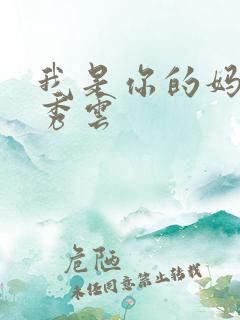 我是你的妈
秀云
危陋
未经同意禁止转载